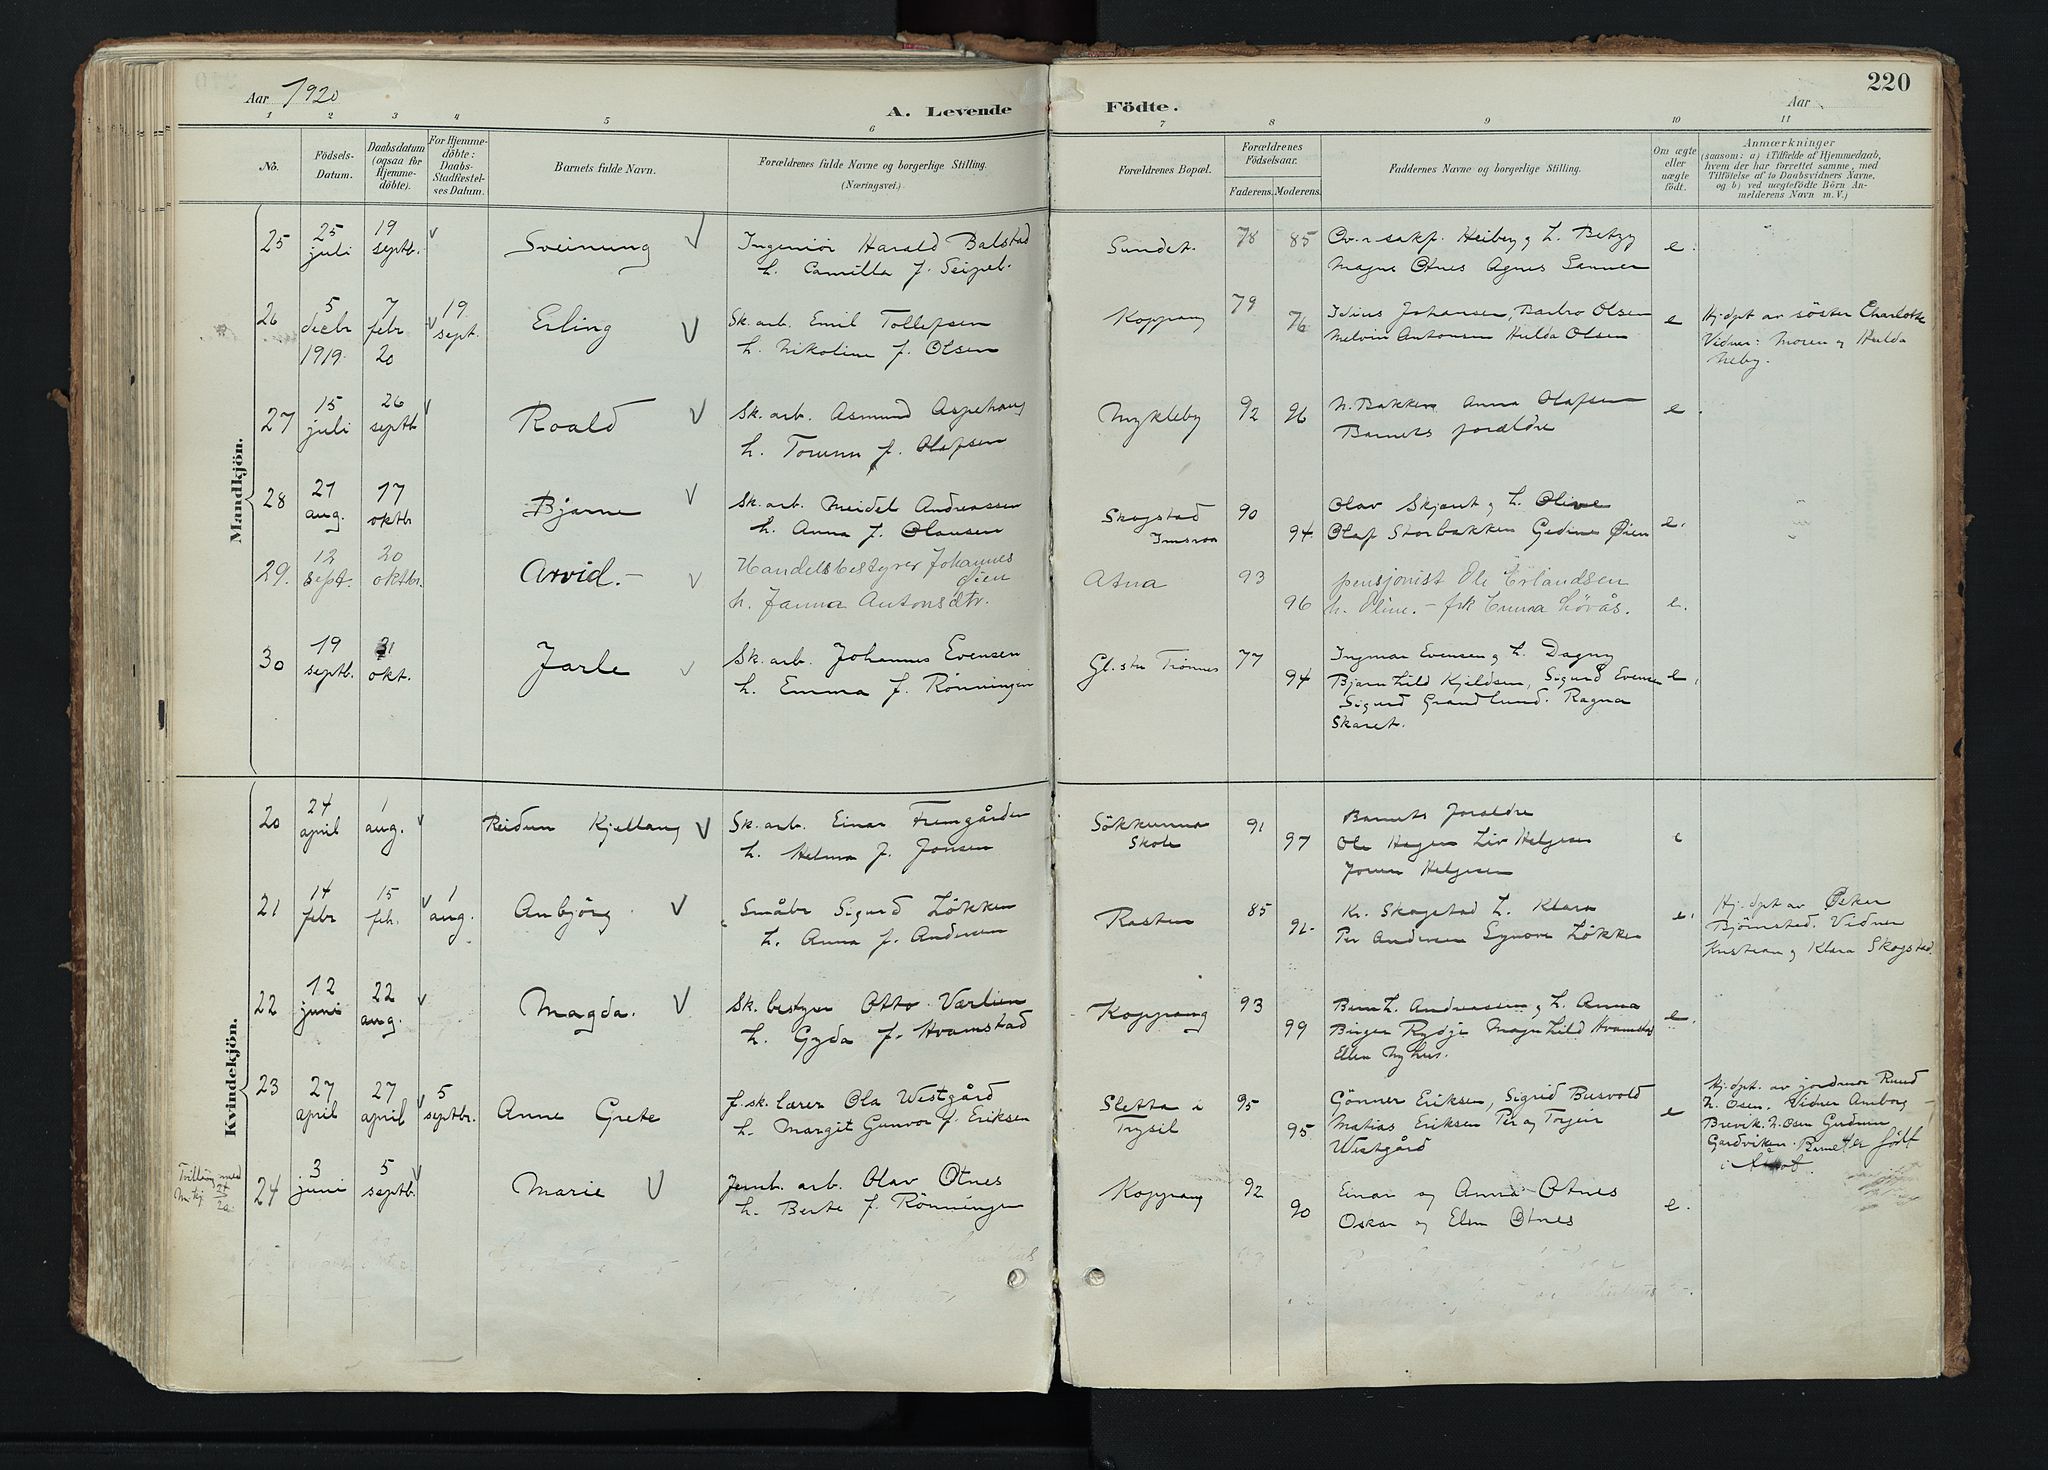 220
Aar 1920
A. Levende Födte.
Aar
1 2 3 4 5 6 7 8 9 10 11
No.
Födsels-
Datum.
Daabsdatum
(ogsaa for
Hjemme-
döbte).
For Hjemme-
döbte:
Daabs-
Stadfæstel-
ses Datum.
Barnets fulde Navn.
Forældrenes fulde Navne og borgerlige Stilling.
(Næringsvei.)
Forældrenes Bopæl.
Forældrenes
Födselsaar.
Faderens. Moderens.
Faddernes Navne og borgerlige Stilling.
Om ægte
eller
uægte
födt.
Anmærkninger
(saasom: a) i Tilfælde af Hjemmedaab,
hvem der har forrettet samme, med
Tilföielse af to Daabsvidners Navne,
og b) ved uægtefödte Börn An-
melderens Navn m. V.)
Mandkjön.
25 25 juli 19 septb. Sveinung Ingeniör Harald Balstad Sundet. 78 85 Heiberg h. Betzy e.
h. Camilla f. Seipel. Magne Otnes Agnes Sanner
26 5 decbr 1919 7 febr 20 19 sept. Erling Sk. arb. Emil Tollefsen Koppang 79 76 Idius Johansen, Barbro Olsen e Hj.dpt av söster Charlotte
h. Nikoline f. Olsen Melvin Antonsen Hulda Olsen Vidner: Moren og Hulda
Neby.
27 15 juli 26 septb Roald Sk. arb. Asmund Aspehaug Nykleby 92 96 N. Bakken Anna Olafsen e.
h. Torunn f. Olafsen Barnets foraldre
28 21 aug. 17 oktb Bjarne Sk. arb. Meidel Andreassen Skogstad 90 94 Olav Skjæret og h. Olive e.
h. Anna f. Olausen Imsroa Olaf Storbakken Gedine Øien
29. 12 sept. 20 oktbr. Arvid. Handelsbestyrer Johannes Øien Atna 93 96 pensjonist Ole Erlandsen e.
h. Janna Antonsdtr. h. Oline. – frk Emma Lövås.
30 19 septb. 31 okt. Jarle Sk. arb. Johannes Evensen Gl. stu Trönnes 77 94 Ingmar Evensen og h. Dagny e.
h. Emma f. Rönningen Bjarnhild Kjeldsen, Sigurd Evensen
Sigurd Grandlund. Ragna
Skaret.
Kvindekjön.
20 24 april 1 aug. Reidun Kjellaug Sk. arb. Einar Fremgården Sökkunna 91 97 Barnets foraldre e
h. Helma f. Jonsen Skole Ole Hagen Liv Helgesen
Helgesen
21 14 febr 15 feb. 1 aug. Anbjörg Småbr Sigurd Løkken Rasten 85 91. Kr. Skogstad h. Klara e. Hj. dpt av Oskar
h. Anna f. Andersen Per Andersen Synöve Løkken Björnstad. Vidner
Kristian og Klara Skogstad.
22 12 juni 22 aug. Magda. Sk. bestyrer Otto Værlien Koppang 93 99 Bernh. Andreassen og h. Anna e.
h. Gyda f. Hvamstad Birger Magnhild Hvamstad
Ellen Nyhus.
23 27 april 27 april 5 septbr. Anne Grete f. sk. lærer Ola Westgård Sletta i 95 95 Gönner Eriksen, Sigrid Busvold e Hj.dpt. av jordmor Ruud
h. Margit Gunvor f. Eriksen Trysil Matias Eriksen Per og Torgeir N. Osen. Vidner Amborg
Westgård Brevik. N. Osen Gudrun
Gardviken. Barnet er født
i Åmot.
Tvilling med
Mkj. 24/20.
24 3 juni 5 septb. Marie Jernb. arb. Olav Otnes Koppang 92 90 Einar og Anna Otnes e.
h. Berte f. Rönningen Oskar og Elen Otnes